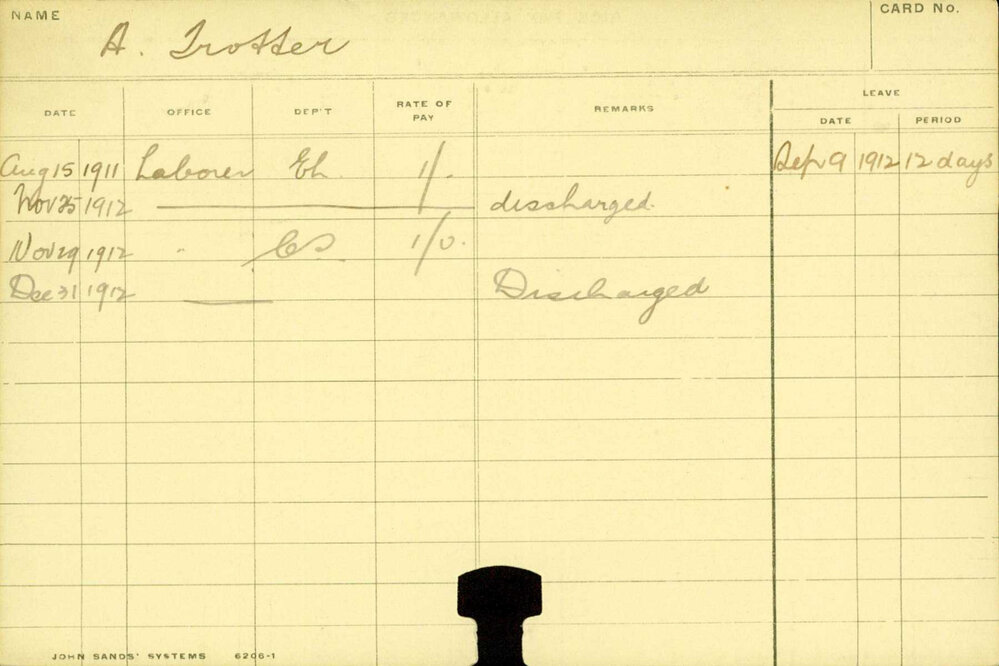 NAME
CARD No.
A. Trotter
LEAVE
DATE OFFICE DEP'T RATE OF PAY REMARKS DATE PERIOD
Aug 15 1911 Laborer Eh 1/. Sepr 9 1912 12 days
Nov 25 1912 discharged.
Nov 29 1912 " CS 1/0.
Dec 31 1912 Discharged
JOHN SANDS' SYSTEMS 6206-1